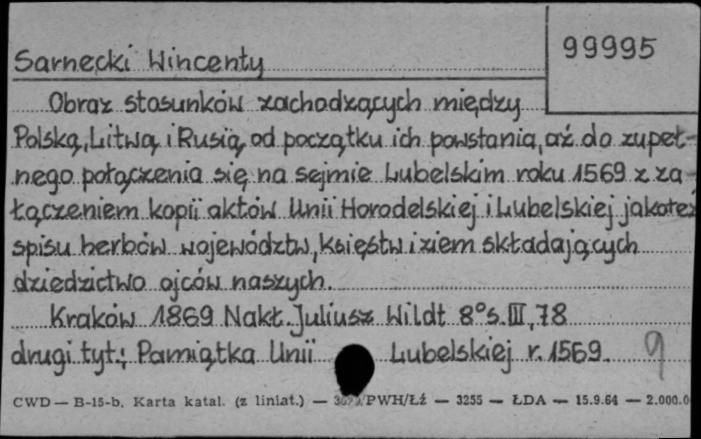 99995
Sarnecki Wincenty
Obraz stosunków zachodzących między
Polską, Litwą i Rusią, od początku ich powstania, aż do zupeł-
nego połączenia się na sejmie Lubelskim roku 1569 z za-
łączeniem kopii aktów Unii Horodelskiej i Lubelskiej jakoteż
spisu herbów województw, księstw i ziem składających
dziedzictwo ojców naszych.
Kraków 1869 Nakł. Juliusz Wildt 8° s. III, 78
drugi tyt.: Pamiątka Unii Lubelskiej r. 1569. 9
CWD — B-15-b. Karta katal. (z liniat.) — PWH/Łź — 3255 — ŁDA — 15.9.64 — 2.000.0